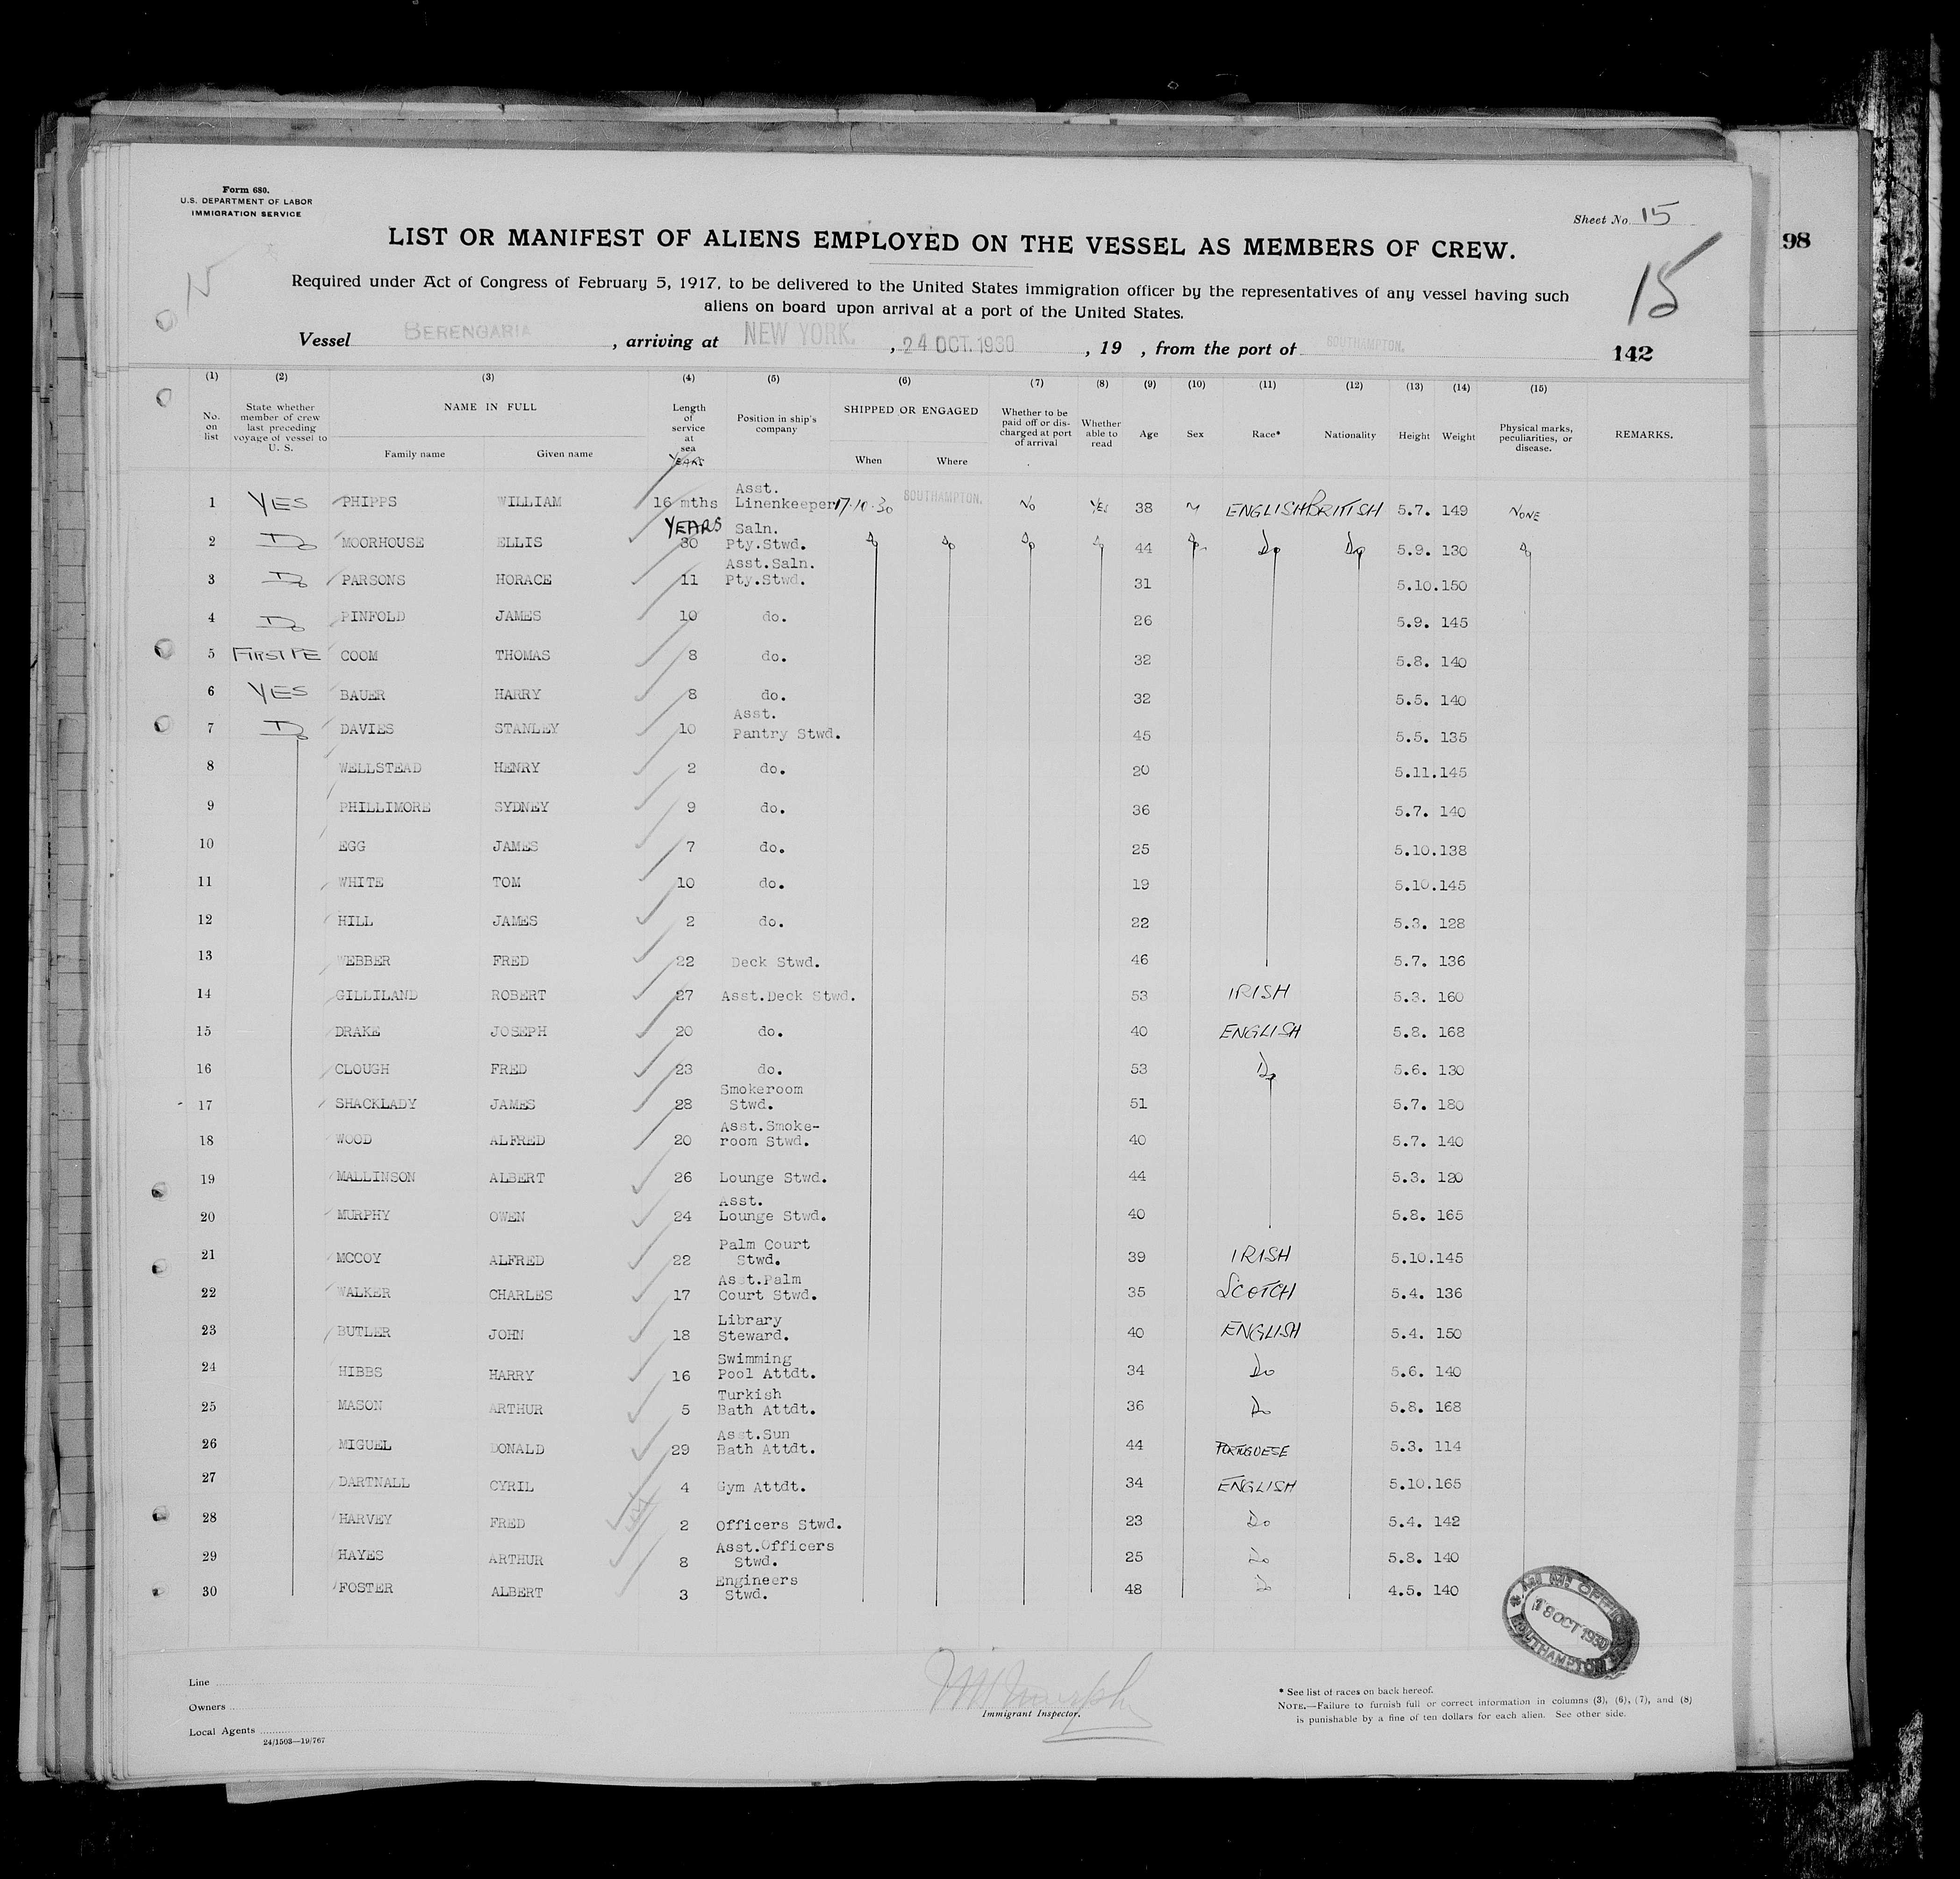 Form 680.
U.S. DEPARTMENT OF LABOR
IMMIGRATION SERVICE
Sheet No. 15
LIST OR MANIFEST OF ALIENS EMPLOYED ON THE VESSEL AS MEMBERS OF CREW.
98
15
15
Required under Act of Congress of February 5, 1917, to be delivered to the United States immigration officer by the representatives of any vessel having such
aliens on board upon arrival at a port of the United States.
Vessel BERENGARIA, arriving at NEW YORK., 24 OCT. 1930, 19 , from the port of SOUTHAMPTON.
142
(1) (2) (3) (4) (5) (6) (7) (8) (9) (10) (11) (12) (13) (14) (15)
No. on list State whether member of crew last preceding voyage of vessel to U. S. NAME IN FULL Family name Given name Length of service at sea YEARS Position in ship's company SHIPPED OR ENGAGED When Where Whether to be paid off or discharged at port of arrival Whether able to read Age Sex Race* Nationality Height Weight Physical marks, peculiarities, or disease. REMARKS.
1 YES PHIPPS WILLIAM 16 mths Asst. Linenkeeper 17.10.30 SOUTHAMPTON. No YES 38 M ENGLISH BRITISH 5.7. 149 NONE
2 Do MOORHOUSE ELLIS YEARS 30 Saln. Pty.Stwd. Do Do Do Do 44 Do Do Do 5.9. 130 Do
3 Do PARSONS HORACE 11 Asst.Saln. Pty.Stwd. 31 5.10.150
4 Do PINFOLD JAMES 10 do. 26 5.9. 145
5 COOM THOMAS 8 do. 32 5.8. 140
6 YES BAUER HARRY 8 do. 32 5.5. 140
7 Do DAVIES STANLEY 10 Asst. Pantry Stwd. 45 5.5. 135
8 WELLSTEAD HENRY 2 do. 20 5.11.145
9 PHILLIMORE SYDNEY 9 do. 36 5.7. 140
10 EGG JAMES 7 do. 25 5.10.138
11 WHITE TOM 10 do. 19 5.10.145
12 HILL JAMES 2 do. 22 5.3. 128
13 WEBBER FRED 22 Deck Stwd. 46 5.7. 136
14 GILLILAND ROBERT 27 Asst.Deck Stwd. 53 IRISH 5.3. 160
15 DRAKE JOSEPH 20 do. 40 ENGLISH 5.8. 168
16 CLOUGH FRED 23 do. 53 Do 5.6. 130
17 SHACKLADY JAMES 28 Smokeroom Stwd. 51 5.7. 180
18 WOOD ALFRED 20 Asst.Smoke-room Stwd. 40 5.7. 140
19 MALLINSON ALBERT 26 Lounge Stwd. 44 5.3. 120
20 MURPHY OWEN 24 Asst. Lounge Stwd. 40 5.8. 165
21 MCCOY ALFRED 22 Palm Court Stwd. 39 IRISH 5.10.145
22 WALKER CHARLES 17 Asst.Palm Court Stwd. 35 SCOTCH 5.4. 136
23 BUTLER JOHN 18 Library Steward. 40 ENGLISH 5.4. 150
24 HIBBS HARRY 16 Swimming Pool Attdt. 34 Do 5.6. 140
25 MASON ARTHUR 5 Turkish Bath Attdt. 36 Do 5.8. 168
26 MIGUEL DONALD 29 Asst.Sun Bath Attdt. 44 PORTUGUESE 5.3. 114
27 DARTNALL CYRIL 4 Gym Attdt. 34 ENGLISH 5.10.165
28 HARVEY FRED 2 Officers Stwd. 23 Do 5.4. 142
29 HAYES ARTHUR 8 Asst.Officers Stwd. 25 Do 5.8. 140
30 FOSTER ALBERT 3 Engineers Stwd. 48 Do 4.5. 140
18 OCT 1930
SOUTHAMPTON
Line
Owners
Local Agents
24/1503—19/767
Immigrant Inspector.
* See list of races on back hereof.
NOTE.—Failure to furnish full or correct information in columns (3), (6), (7), and (8)
is punishable by a fine of ten dollars for each alien. See other side.